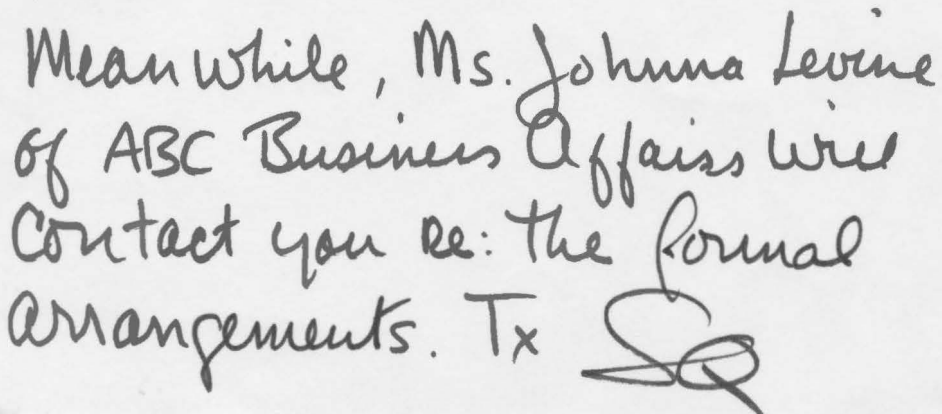 Meanwhile, Ms. Johnna Levine
of ABC Business Affairs will
Contact you re: the formal
arrangements. Tx SQ